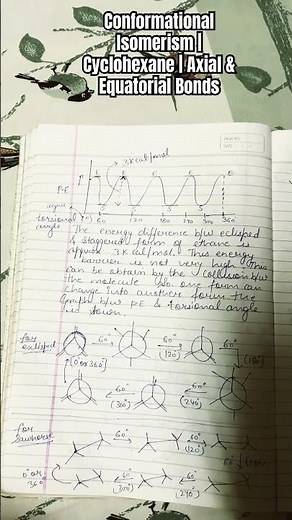 Conformational
Isomerism |
Cyclohexane | Axial &
Equatorial Bonds
3Kcal/mol
P.E
E E E
S S S
torsional (0°) 60 120 180 240 300 360°
angle
The energy difference b/w eclipsed
& staggered form of ethane is
approx 3 Kcal/mol. This energy
barrier is not very high. This
can be obtain by the collision b/w
the molecule so one form can
change into another form the
graph b/w PE & torsional angle
is shown.
for eclipsed
60° 60° (120°) 60° (180°)
(0° or 360°)
60° (300°) 60° (240°)
for sawhorse
60° 60° (120°) 60° (180°)
0° or 360°
60° (300°) 60° (240°)